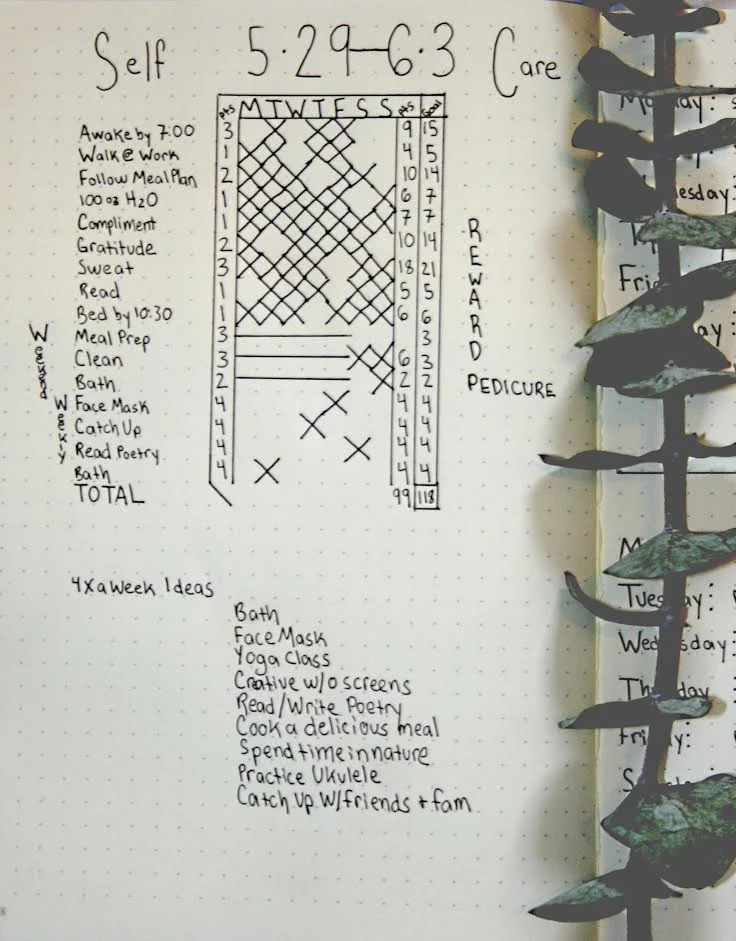 Self 5·29-6·3 Care
Pts M T W T F S S Pts Goal
Awake by 7:00 3 9 15
Walk @ Work 1 4 5
Follow Meal Plan 2 10 14
100 oz H2O 1 6 7
Compliment 1 7 7
Gratitude 2 10 14
Sweat 3 18 21
Read 1 5 5
Bed by 10:30 1 6 6
Meal Prep 3 3
Clean 3 6 3
Bath 2 2 2
Face Mask 4 4 4
Catch Up 4 4 4
Read Poetry 4 4 4
Bath 4 4 4
TOTAL 99 118
Weekly
REWARD
PEDICURE
4x a Week Ideas
Bath
Face Mask
Yoga Class
Creative w/o screens
Read/Write Poetry
Cook a delicious meal
Spend time in nature
Practice Ukulele
Catch Up w/friends + fam